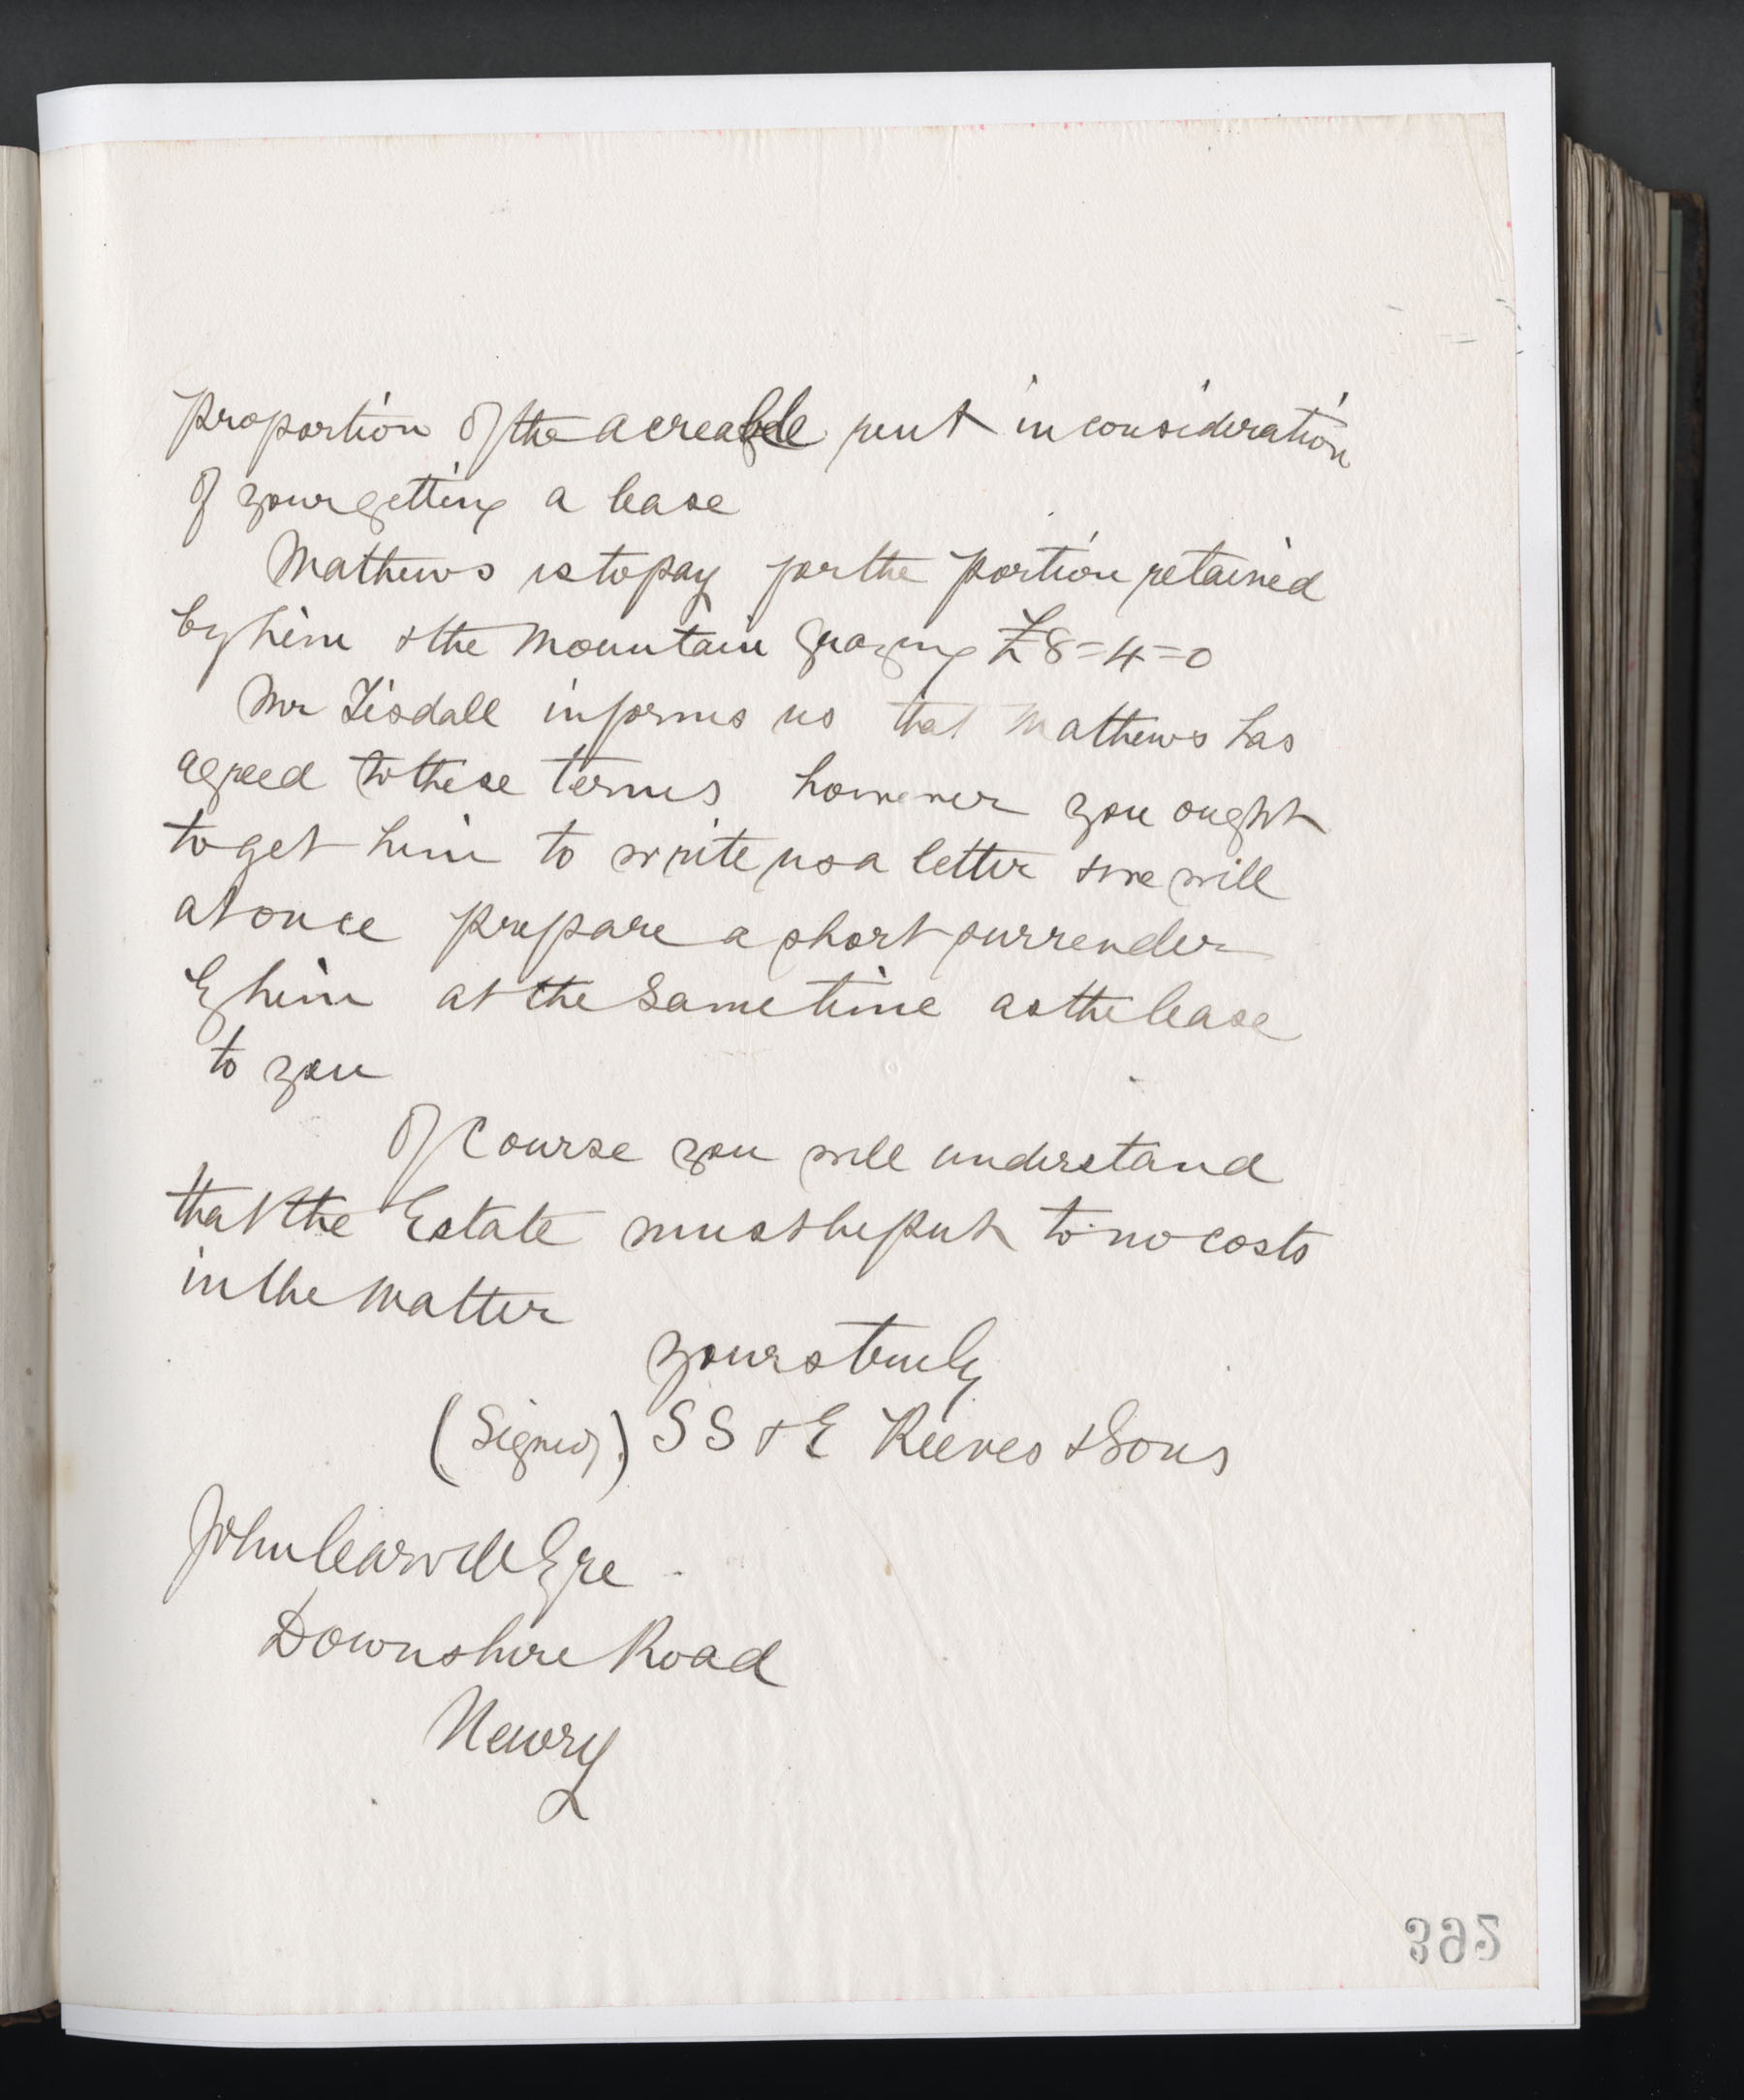 proportion of the acreable rent in consideration
of your getting a lease
Mathews is to pay for the portion retained
by him & the Mountain grazing £8=4=0
Mr Tisdall informs us that Mathews has
agreed to these terms however you ought
to get him to write us a letter & we will
at once prepare a short surrender
by him at the same time as the lease
to you
Of Course you will understand
that the Estate must be put to no costs
in the matter
Yours truly
(Signed) S S & E Reeves & Sons
John Carvill Esqre
Downshire Road
Newry